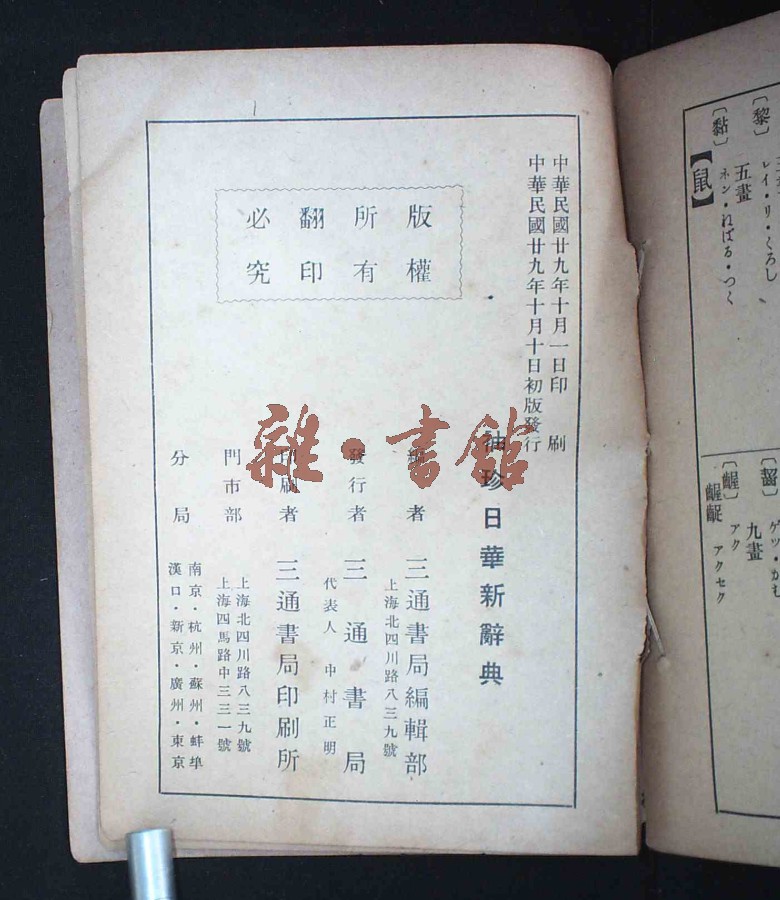 中華民國廿九年十月一日印刷
中華民國廿九年十月十日初版發行
版權
所有
翻印
必究
袖珍日華新辭典
編者 三通書局編輯部
上海北四川路八三九號
發行者 三通書局
代表人 中村正明
印刷者 三通書局印刷所
門市部 上海北四川路八三九號
上海四馬路中三三一號
分局 南京・杭州・蘇州・蚌埠
漢口・新京・廣州・東京
雜・書館
〔黎〕 レイ・リ・くろし
五畫
〔黏〕 ネン・ねばる・つく
【鼠】
〔齧〕 ゲツ・かむ
九畫
〔齷〕 アク
齷齪 アクセク